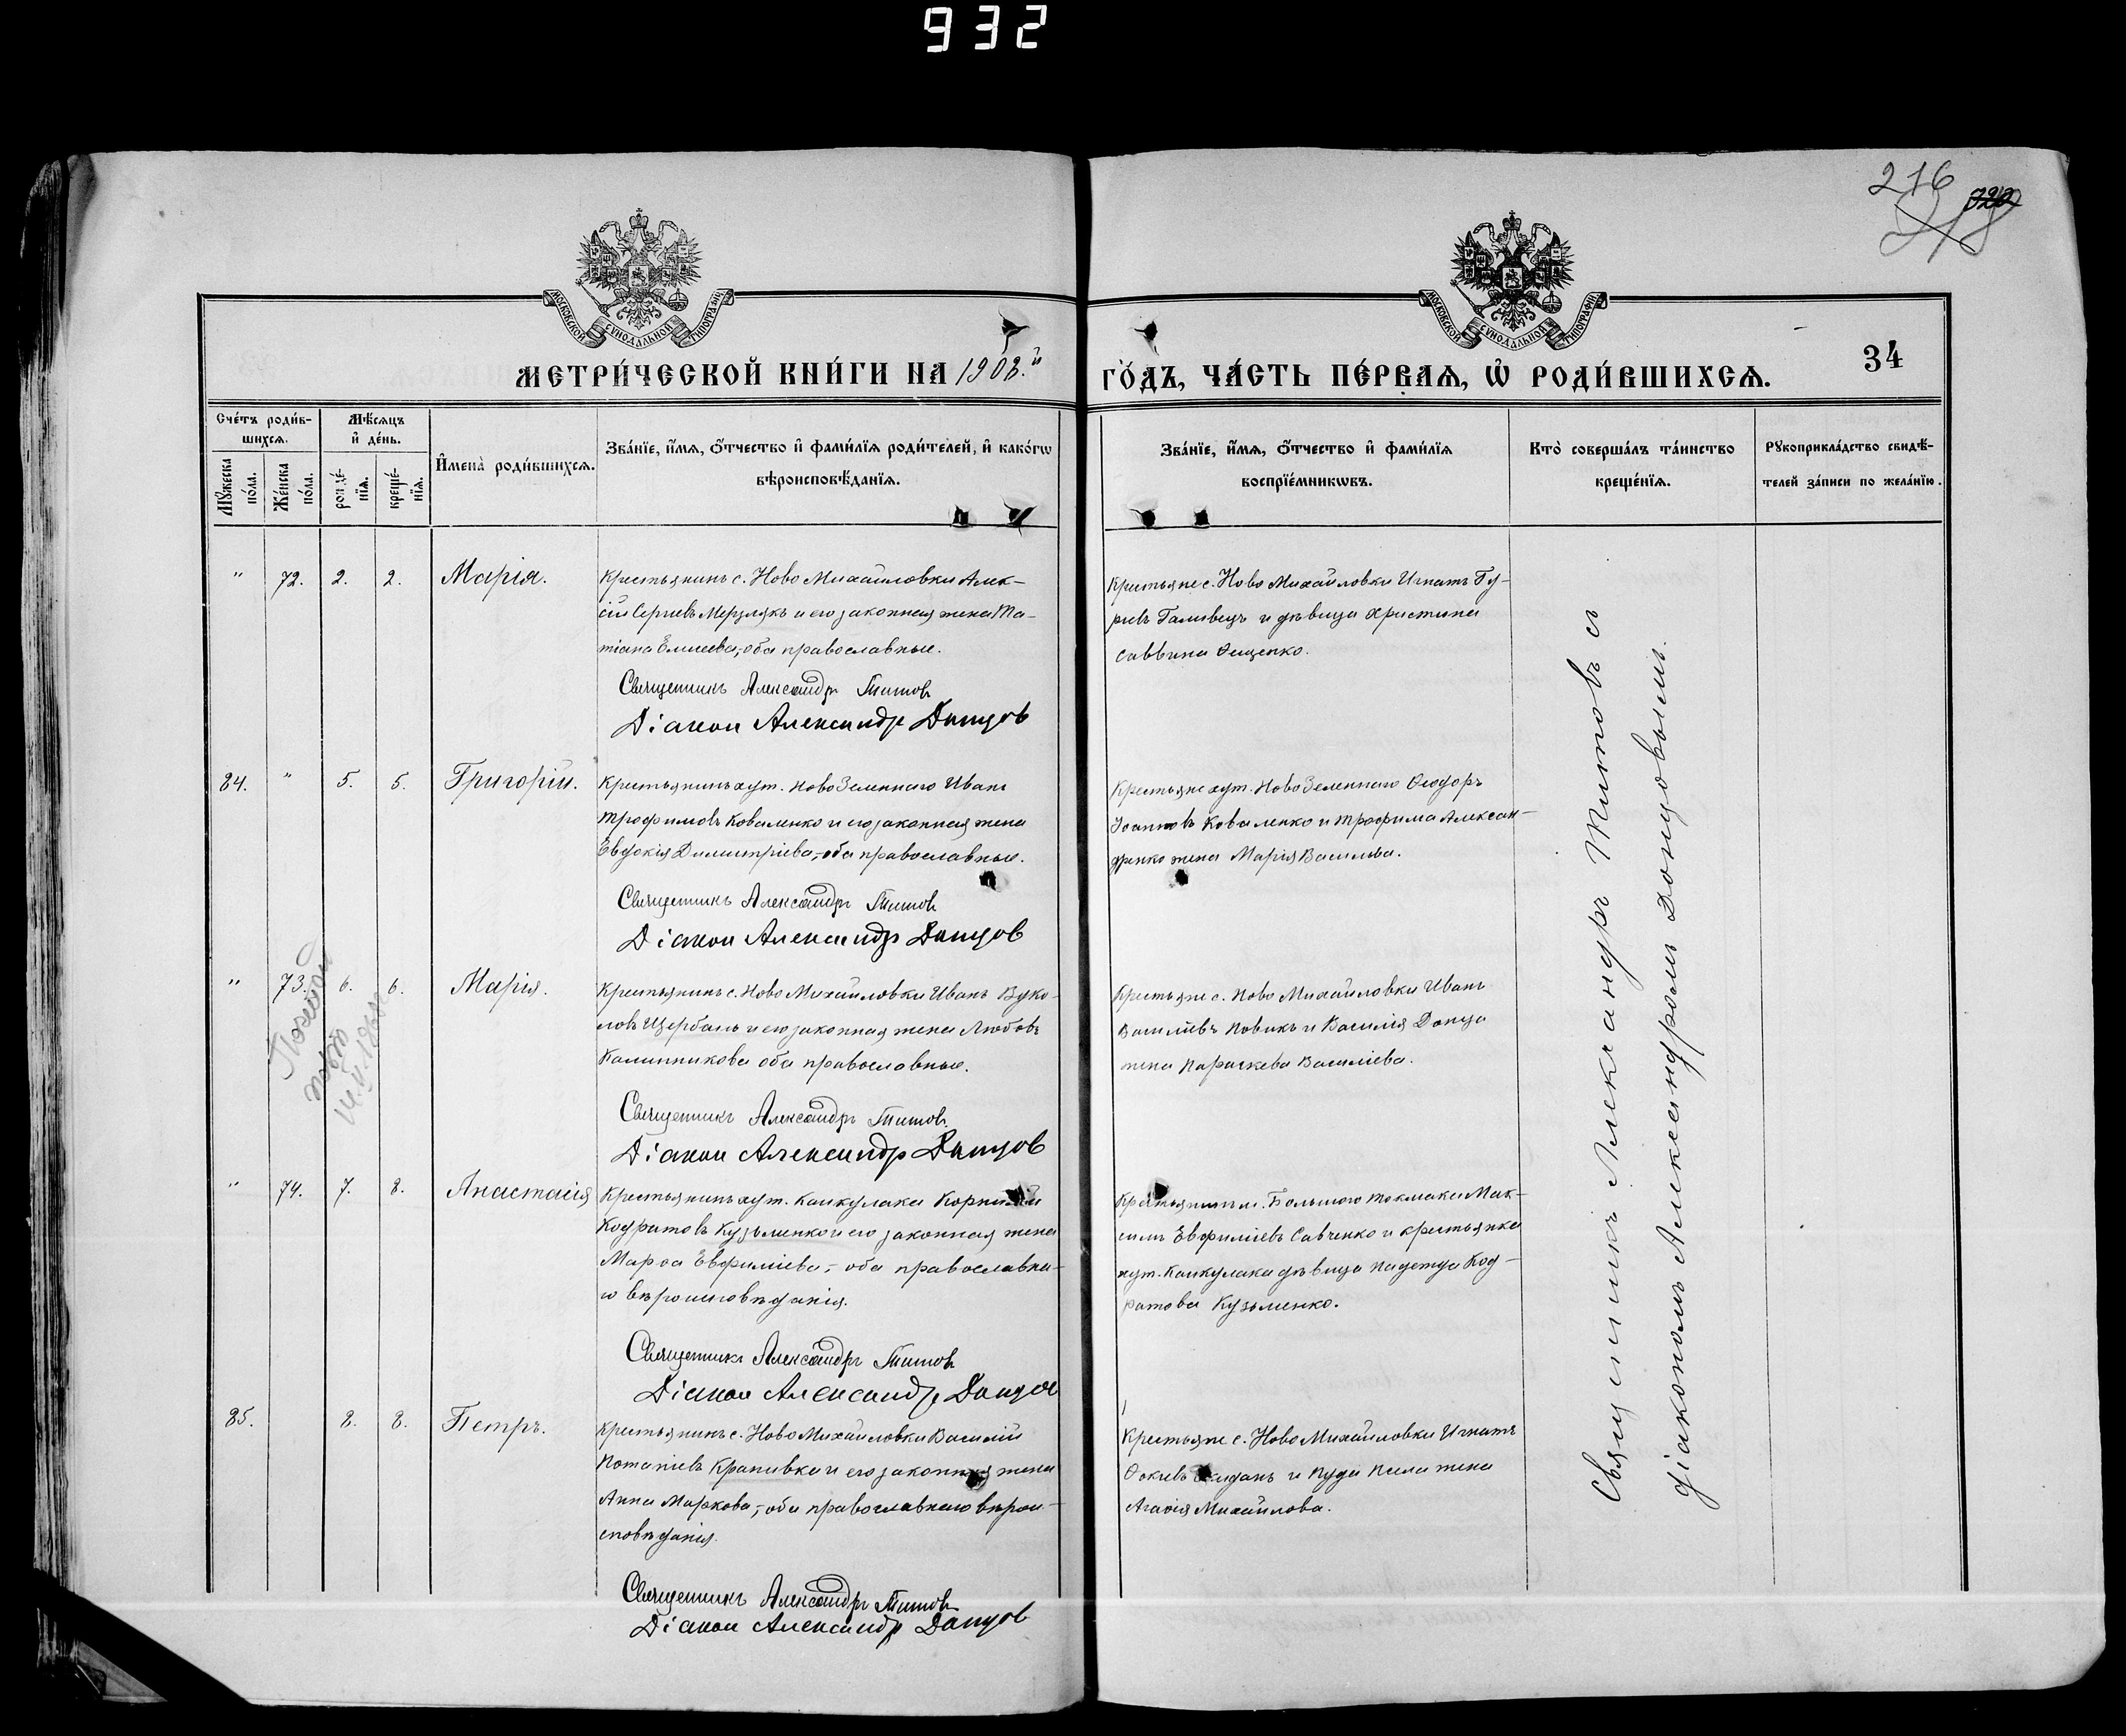 932
216
720
34
МОСКОВСКОЙ СѴНОДАЛЬНОЙ ТИПОГРАФІИ
МОСКОВСКОЙ СѴНОДАЛЬНОЙ ТИПОГРАФІИ
МЕТРИ́ЧЕСКОЙ КНИ́ГИ НА 1908.й
ГО́ДЪ, ЧА́СТЬ ПЕ́РВАЯ, Ѡ҆ РОДИ́ВШИХСЯ.
Сче́тъ роди́в-
шихся.
Мѣ́сяцъ
и҆ де́нь.
Мꙋ́жеска
по́ла.
Же́нска
по́ла.
рожде́-
нїя.
креще́-
нїя.
И҆мена̀ роди́вшихся.
Зва́нїе, и҆́мя, ѻ҆́тчество и҆ фами́лїя роди́телей, и҆ како́гѡ
вѣроисповѣ́данїя.
Зва́нїе, и҆́мя, ѻ҆́тчество и҆ фами́лїя
воспрїе́мникѡвъ.
Кто̀ соверша́лъ та́инство
креще́нїя.
Рꙋкоприкла́дство свидѣ́-
телей за́писи по жела́нїю.
" 72. 2. 2. Марія.
Крестьянинъ с. Ново Михайловки Алек-
сій Сергіевъ Мерзлякъ и его законная жена Та-
тіана Елисеева, оба православные.
Священникъ Александръ Титовъ
Діакон Александр Донцов
Крестьяне с. Ново Михайловки Игнатъ Гу-
ріевъ Галивецъ и дѣвица Христина
Саввина Ѳещенко.
84. " 5. 5. Григорій.
Крестьянинъ хут. НовоЗеленнаго Иванъ
Трофимовъ Коваленко и его законная жена
Евдокія Димитріева, оба православные.
Священникъ Александръ Титов
Діакон Александр Донцов
Крестьяне хут. НовоЗеленнаго Ѳеодоръ
Іоанновъ Коваленко и Трофима Алексан-
дренко жена Марія Васильева.
" 73. 6. 6. Марія.
14.V.1968
Крестьянинъ с. Ново Михайловки Иванъ Вуко-
ловъ Щербань и его законная жена Любовь
Калинникова оба православные.
Священникъ Александръ Титовъ
Діакон Александр Донцов
Крестьяне с. Ново Михайловки Иванъ
Василіевъ Новикъ и Василія Донца
жена Параскева Василіева.
" 74. 7. 8. Анастасія
Крестьянинъ хут. Канкулака Корнилій
Кодратовъ Кузьменко и его законная жена
Марѳа Евфиміева, оба православна-
го вѣроисповѣданія.
Священникъ Александръ Титовъ
Діакон Александр Донцов
Крестьянинъ м. Большого Токмака Мак-
симъ Евфиміевъ Савченко и крестьянка
хут. Канкулака дѣвица Надежда Код-
ратова Кузьменко.
85. 8. 8. Петръ.
Крестьянинъ с. Ново Михайловки Василій
Потапіевъ Крапивка и его законная жена
Анна Маркова, оба православнаго вѣрои-
сповѣданія.
Священникъ Александръ Титовъ
Діакон Александр Донцов
Крестьяне с. Ново Михайловки Игнатъ
Ѳокіевъ и Іуды Пила жена
Агаѳія Михайлова.
Священникъ Александръ Титовъ съ
діакономъ Александромъ Донцовымъ.